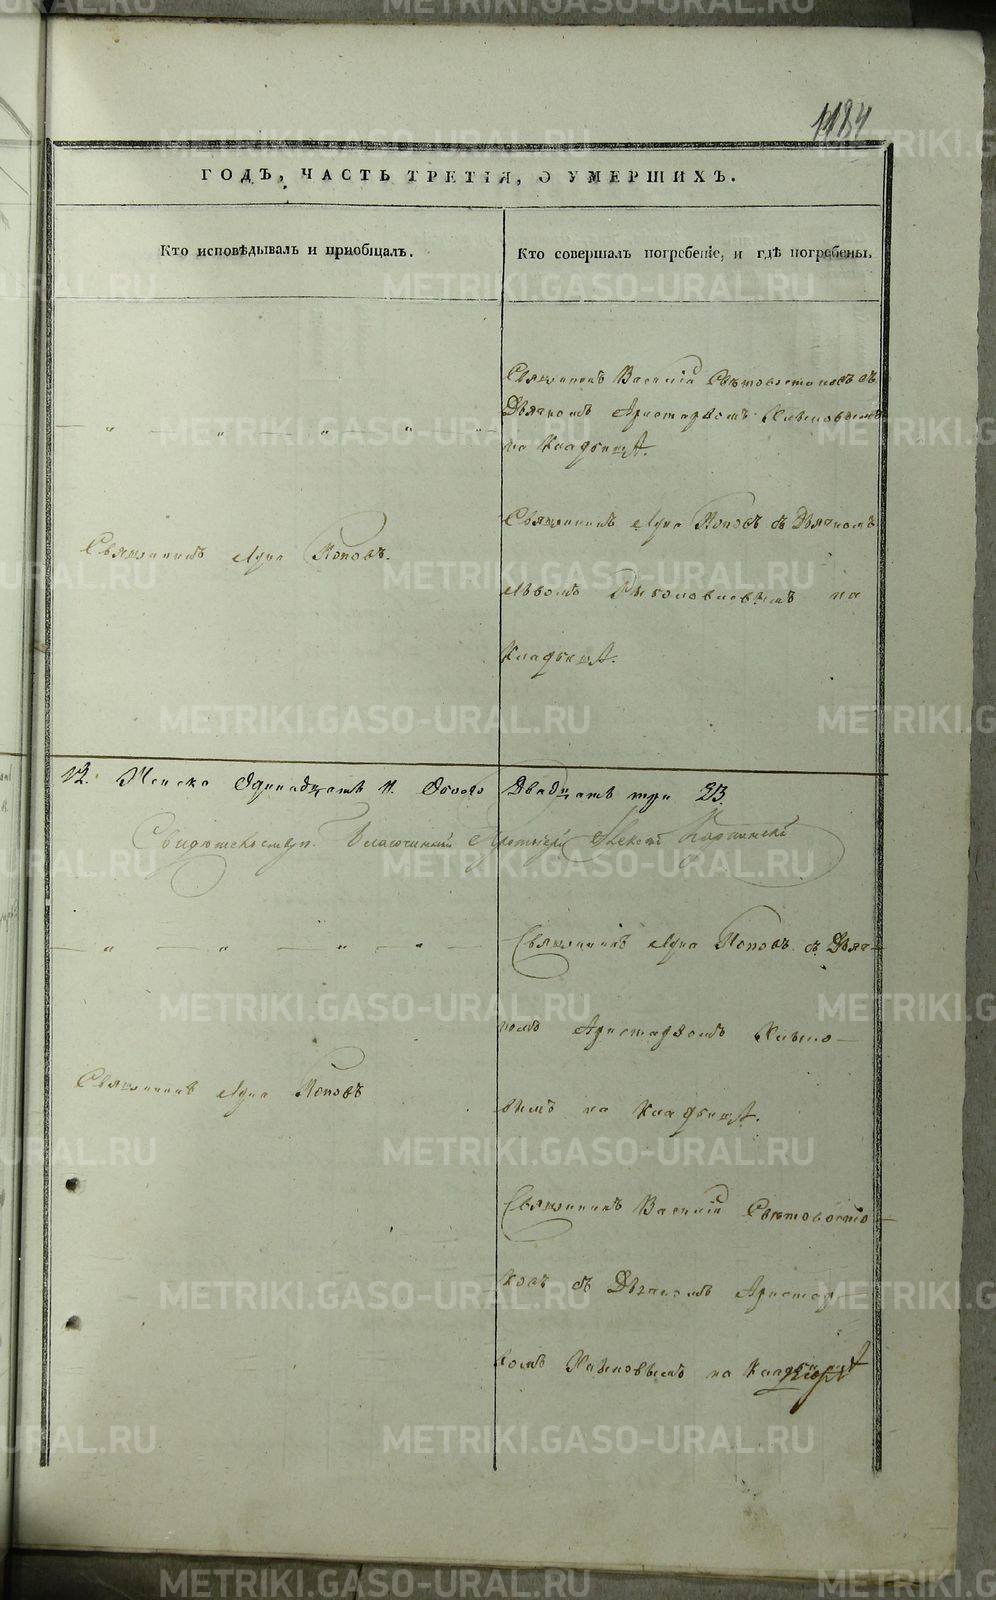 1184
ГОДЪ, ЧАСТЬ ТРЕТІЯ, О УМЕРШИХЪ.
Кто исповѣдывалъ и пріобщалъ.
Кто совершалъ погребеніе, и гдѣ погребены.
Священникъ Василій Свѣтовостоковъ съ
Дьячкомъ Аристархомъ
на Кладбищѣ.
Священникъ Поповъ.
Священникъ Поповъ съ Дьячкомъ
на
Кладбищѣ.
12. Женска Одинадцать 11. Обоего Двадцать три 23.
Свидетельствовалъ Благочинный Протоіерей Алексей
Священникъ Поповъ съ Дьяч-
комъ Аристархомъ
на Кладбищѣ.
Священникъ Поповъ
Священникъ Василій Свѣтовосто-
ковъ съ Дьячкомъ Аристар-
хомъ на Кладбищѣ
METRIKI.GASO-URAL.RU